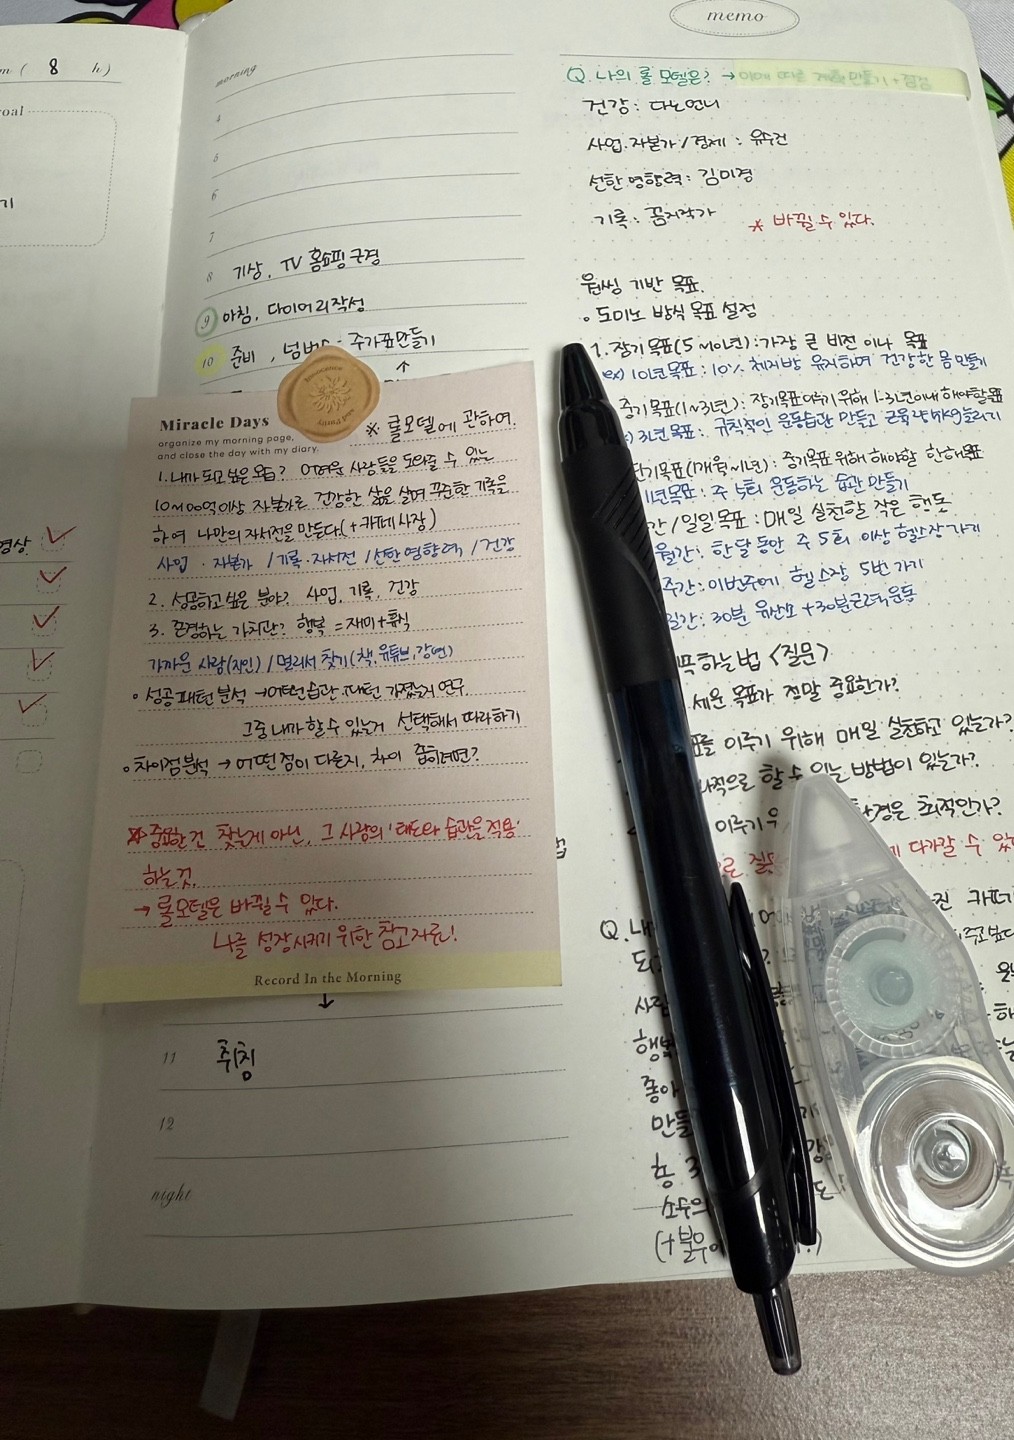 m ( 8 h)
oal
기
영상
morning
4
5
6
7
8 기상, TV 홈쇼핑 구경
9 아침, 다이어리작성
10 준비, 넘버스: 주가표만들기
↑
Miracle Days
organize my morning page,
and close the day with my diary.
※ 롤모델에 관하여.
1. 내가 되고 싶은 모습? 어려운 사람들을 도와줄 수 있는
자본가로 건강한 삶을 살며 꾸준한 기록을
하여 나만의 자서전을 만든다.(+카페 사장)
사업 · 자본가 / 기록·자서전 / 선한 영향력 / 건강
2. 성공하고 싶은 분야? 사업, 기록, 건강
3. 존경하는 가치관? 행복 = 재미+휴식
가까운 사람(지인) / 멀리서 찾기(책, 유튜브, 강연)
○ 성공패턴 분석 → 어떤 습관, 패턴 가졌는지 연구.
그중 내가 할 수 있는거 선택해서 따라하기
○ 차이점 분석 → 어떤 점이 다른지, 차이 좁히려면?
※ 중요한 건 찾는게 아닌, 그 사람의 '태도와 습관을 적용'
하는 것.
→ 롤모델은 바뀔 수 있다.
나를 성장시키기 위한 참고자료!
Record In the Morning
↓
11 취침
12
night
memo
Q. 나의 롤 모델은? →
건강: 다노언니
사업.자본가/경제 : 유수진
선한 영향력: 김미경
기록: 꿈지작가
※ 바뀔 수 있다.
기반 목표.
○ 도미노 방식 목표 설정
1. 장기목표(5~10년): 가장 큰 비전 이나 목표
ex) 10년목표: 10% 체지방 유지하며 건강한 몸 만들기
중기목표(1~3년): 장기목표 이루기 위해 1-3년이내 해야할 목표
) 3년목표: 규칙적인 운동습관 만들고 근육량 늘리기
단기목표(매월~1년): 중기목표 위해 해야할 한해 목표
1년목표: 주 5회 운동하는 습관 만들기
간/일일목표: 매일 실천할 작은 행동
월간: 한달 동안 주 5회 이상 헬스장 가기
주간: 이번주에 헬스장 5번 가기
일간: 30분 유산소 + 30분 근력운동
하는법 <질문>
세운 목표가 정말 중요한가?
표를 이루기 위해 매일 실천하고 있는가?
적으로 할 수 있는 방법이 있는가?
이루기 환경은 최적인가?
로 다가갈 수 있
Q. 내
진 카페
사람
행복
좋아
만들
총 3
소수의
(+불우